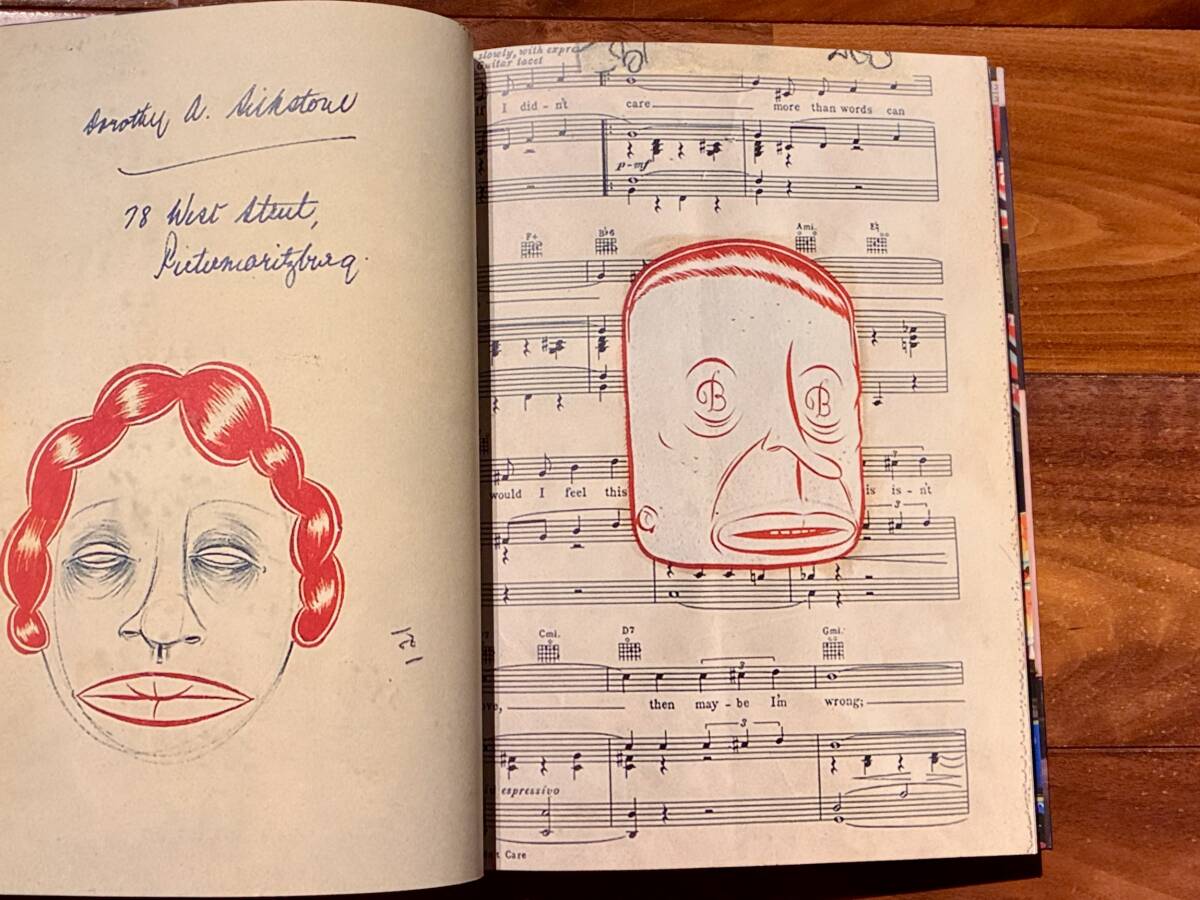 Dorothy A.
78 West Street,
Pietermaritzburg.
slowly, with expre
Guitar tacet
I did - n't care more than words can
F+ B♭6 Ami. E♮
B B
would I feel this is is - n't
3
3
Cmi. D7 Gmi.
3
then may - be I'm wrong;
3
espressivo
n't Care